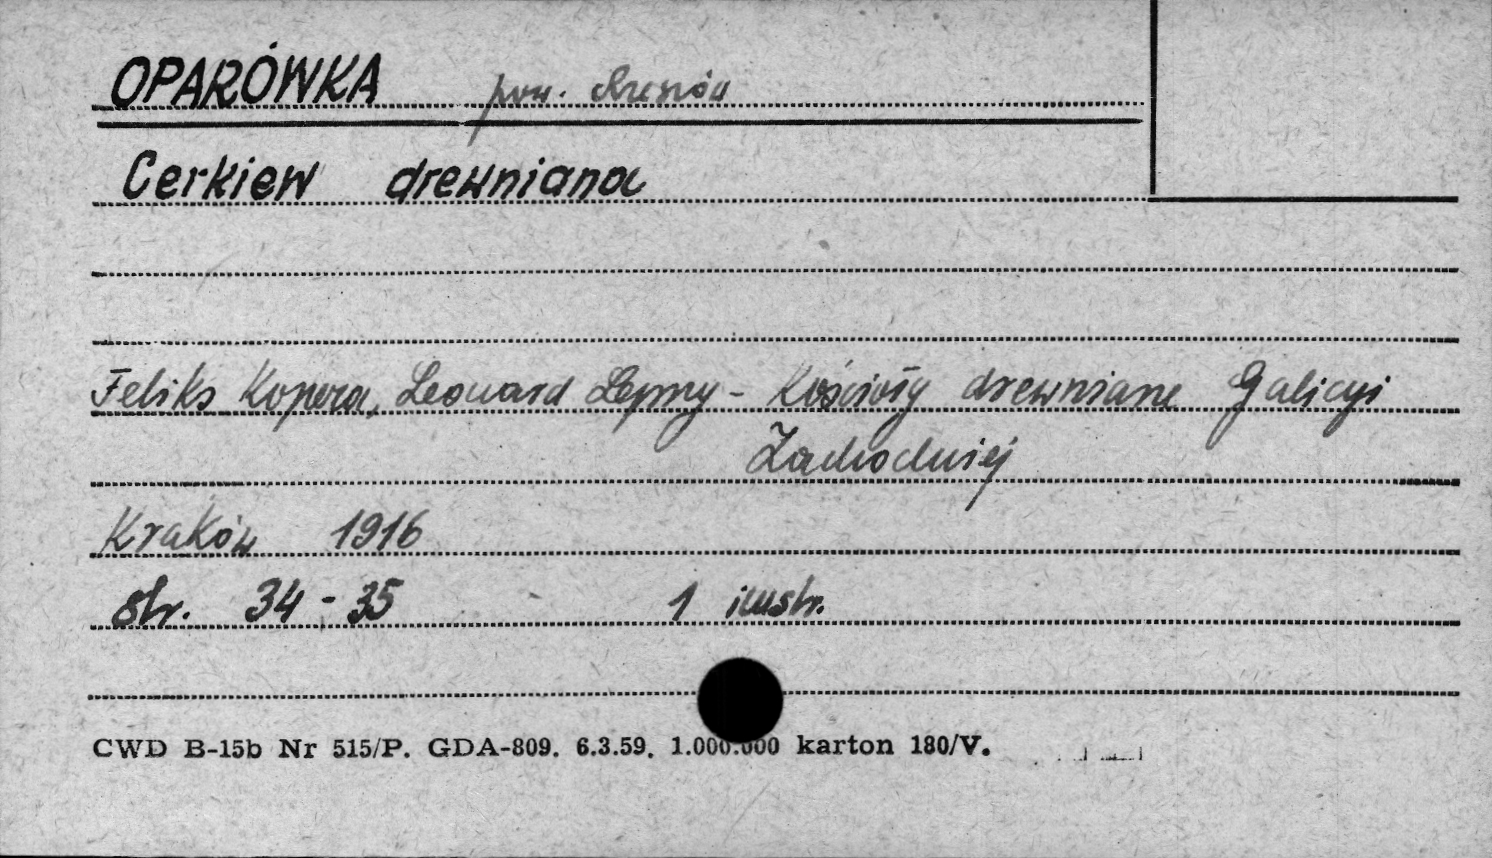 OPARÓWKA pow. Rzeszów
Cerkiew drewniana
Feliks Kopera, Leonard Lepszy - Kościoły drewniane Galicyi
Zachodniej
Kraków 1916
str. 34-35 1 ilustr.
CWD B-15b Nr 515/P. GDA-809. 6.3.59. 1.000.000 karton 180/V.